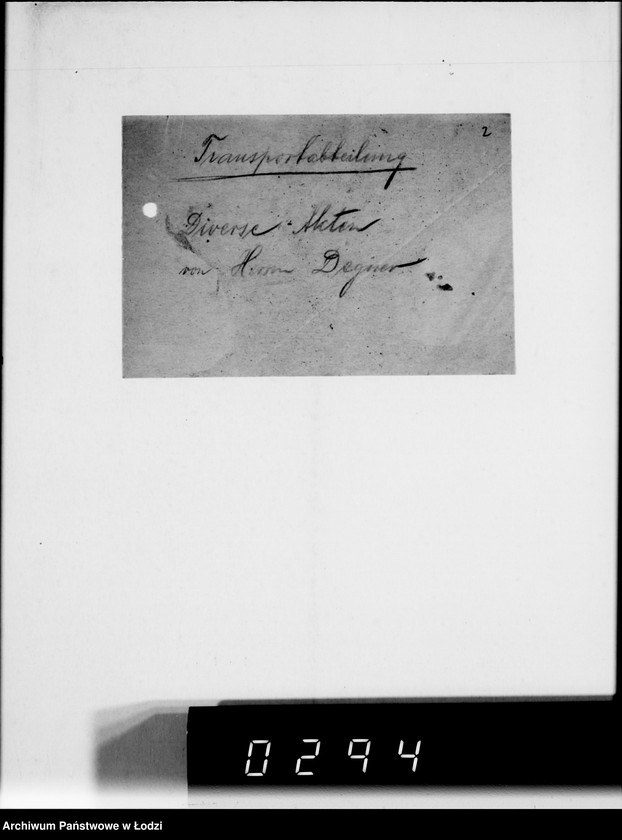 2
Transportabteilung
Diverse Akten
von Herrn Degner
0294
Archiwum Państwowe w Łodzi